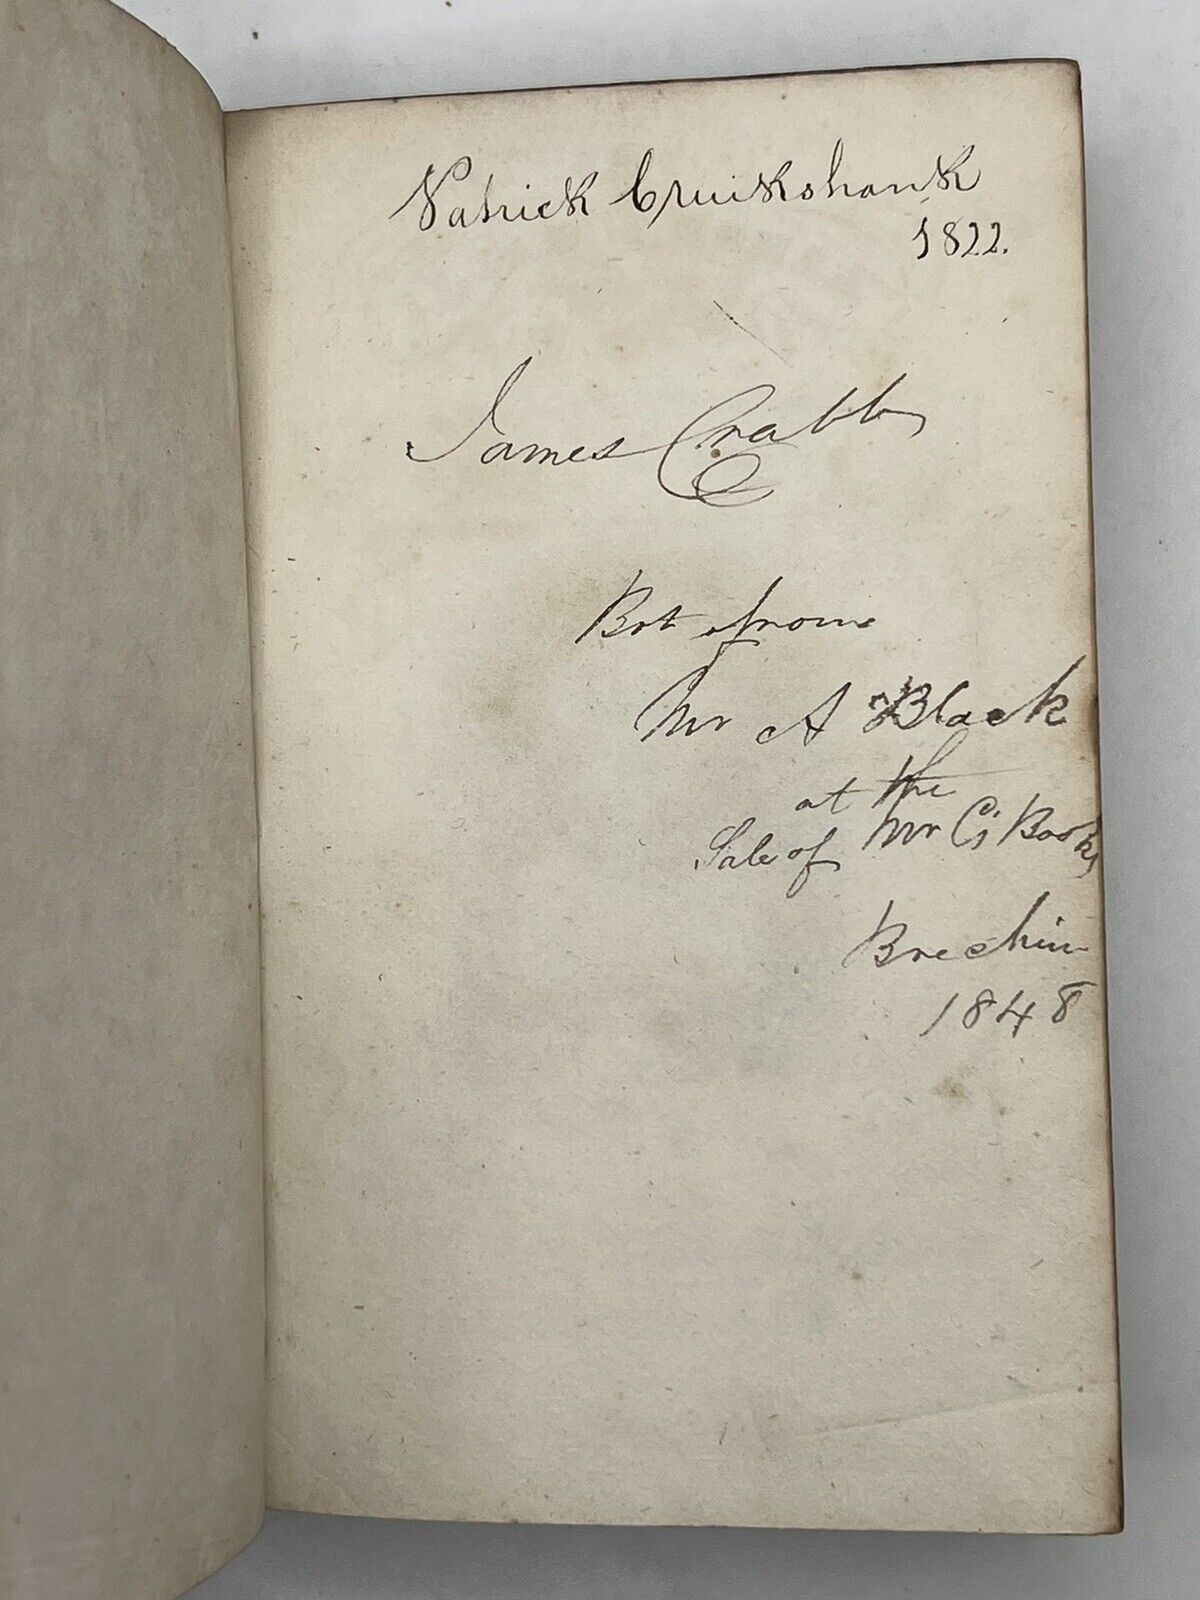 Patrick Cruikshank
1822.
James Crabb
Bot from
Mr A Black
at the
Sale of Mr C's Books
Brechin
1848